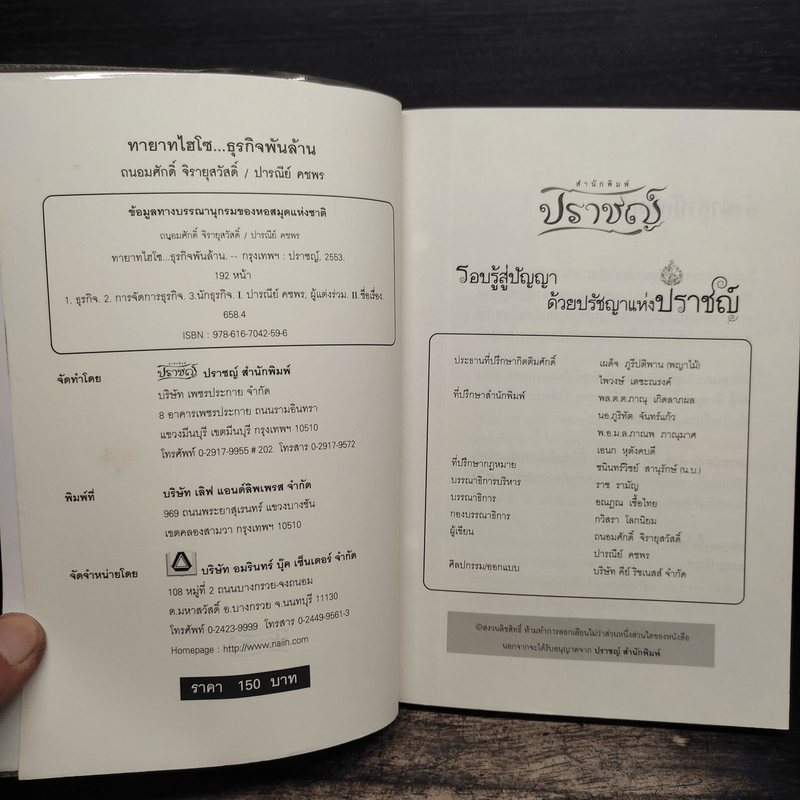 ทายาทไฮโซ...ธุรกิจพันล้าน
ถนอมศักดิ์ จิรายุสวัสดิ์ / ปารณีย์ คชพร
ข้อมูลทางบรรณานุกรมของหอสมุดแห่งชาติ
ถนอมศักดิ์ จิรายุสวัสดิ์ / ปารณีย์ คชพร
ทายาทไฮโซ...ธุรกิจพันล้าน. -- กรุงเทพฯ : ปราชญ์, 2553.
192 หน้า
1. ธุรกิจ. 2. การจัดการธุรกิจ. 3.นักธุรกิจ. I. ปารณีย์ คชพร, ผู้แต่งร่วม. II.ชื่อเรื่อง.
658.4
ISBN : 978-616-7042-59-6
จัดทำโดย ปราชญ์ ปราชญ์ สำนักพิมพ์
บริษัท เพชรประกาย จำกัด
8 อาคารเพชรประกาย ถนนรามอินทรา
แขวงมีนบุรี เขตมีนบุรี กรุงเทพฯ 10510
โทรศัพท์ 0-2917-9955 # 202 โทรสาร 0-2917-9572
พิมพ์ที่ บริษัท เลิฟ แอนด์ลิพเพรส จำกัด
969 ถนนพระยาสุเรนทร์ แขวงบางชัน
เขตคลองสามวา กรุงเทพฯ 10510
จัดจำหน่ายโดย บริษัท อมรินทร์ บุ๊ค เซ็นเตอร์ จำกัด
108 หมู่ที่ 2 ถนนบางกรวย-จงถนอม
ต.มหาสวัสดิ์ อ.บางกรวย จ.นนทบุรี 11130
โทรศัพท์ 0-2423-9999 โทรสาร 0-2449-9561-3
Homepage : http://www.naiin.com
ราคา 150 บาท
สำนักพิมพ์
ปราชญ์
รอบรู้สู่ปัญญา
ด้วยปรัชญาแห่งปราชญ์
ประธานที่ปรึกษากิตติมศักดิ์ เผด็จ ภูรีปติพาน (พญาไม้)
ไพวงษ์ เตชะณรงค์
ที่ปรึกษาสำนักพิมพ์ พล.ต.ต.ภาณุ เกิดลาภผล
นอ.ภูริทัต จันทร์แก้ว
พ.อ.ม.ล.ภาณพ ภาณุมาศ
เอนก หุตังคบดี
ที่ปรึกษากฎหมาย ชนินทร์วิชย์ สานุรักษ์ (น.บ.)
บรรณาธิการบริหาร ราช รามัญ
บรรณาธิการ อณฎณ เชื้อไทย
กองบรรณาธิการ กวิสรา โลกนิยม
ผู้เขียน ถนอมศักดิ์ จิรายุสวัสดิ์
ปารณีย์ คชพร
ศิลปกรรม/ออกแบบ บริษัท คีย์ ริชเนสส์ จำกัด
©สงวนลิขสิทธิ์ ห้ามทำการลอกเลียนไม่ว่าส่วนหนึ่งส่วนใดของหนังสือ
นอกจากจะได้รับอนุญาตจาก ปราชญ์ สำนักพิมพ์